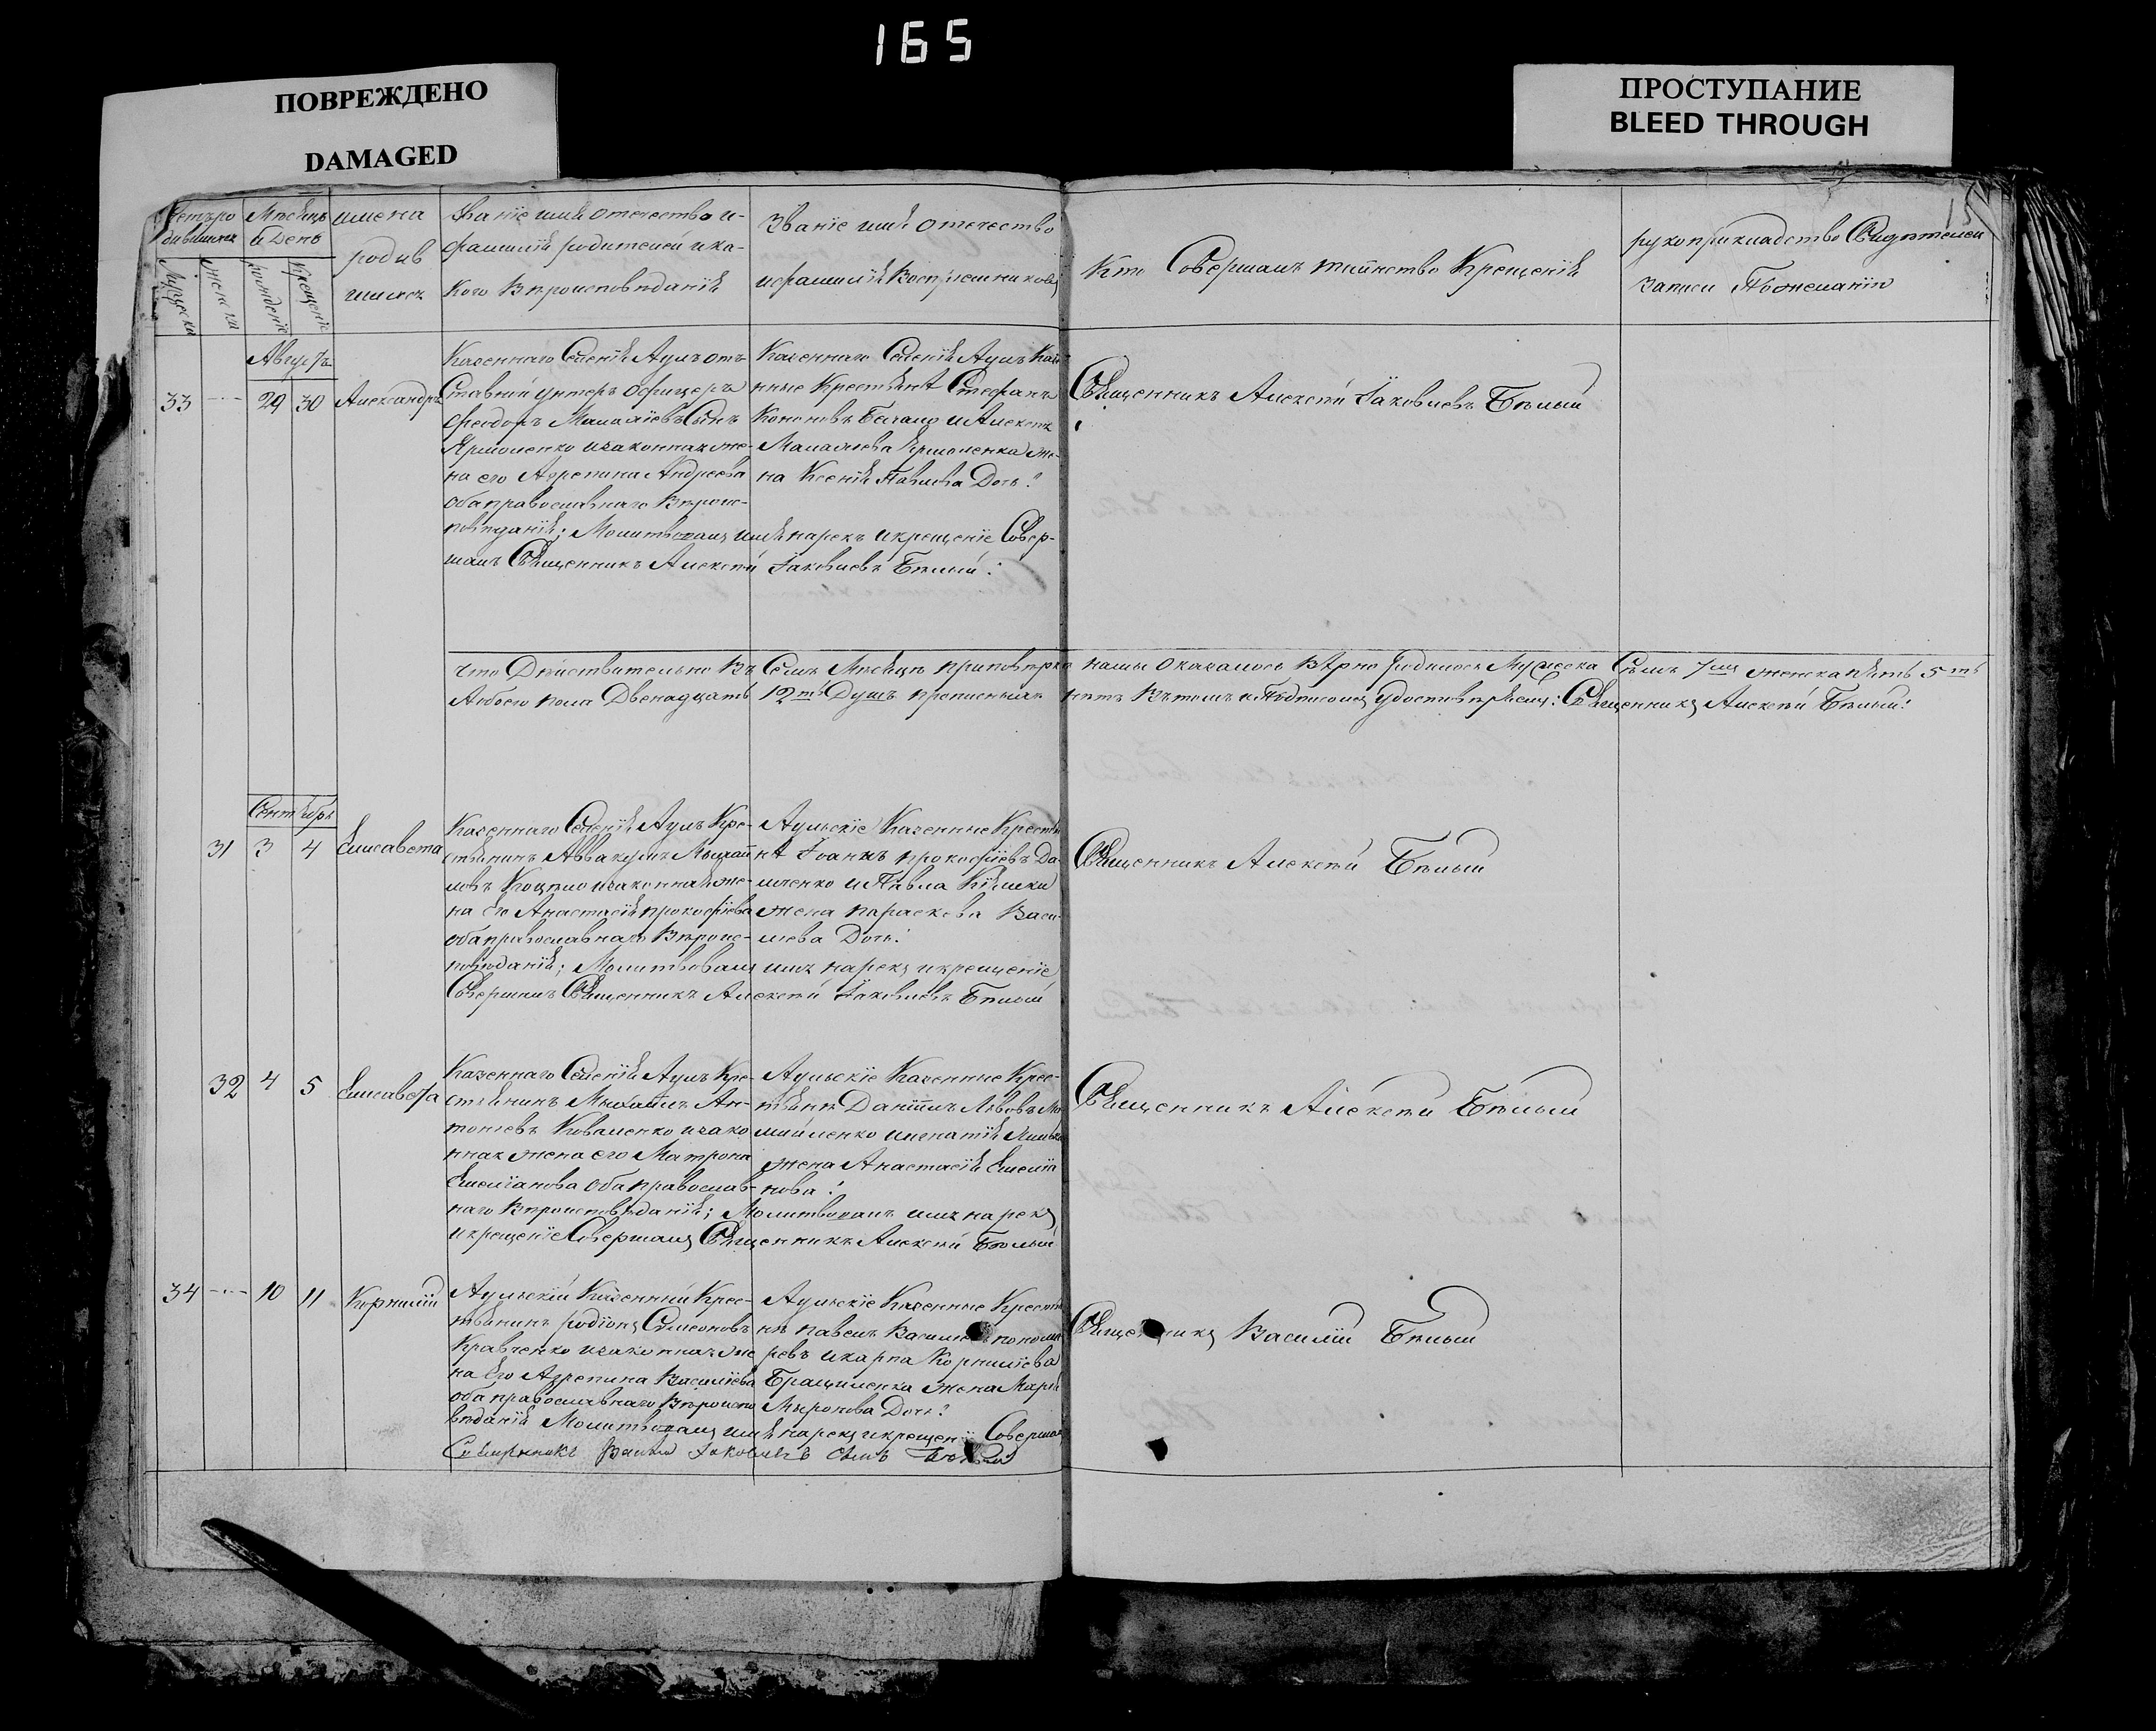 165
ПОВРЕЖДЕНО
DAMAGED
ПРОСТУПАНИЕ
BLEED THROUGH
15
Счетъ ро
дившихся
Мѣсяцъ
и День
имена
родив
шихся
Званіе имя отечество и
фамилія родителей и ка-
кого вѣроисповѣданія
Званіе имя отечество
и фамилія Воспріемниковъ
Кто Совершалъ таинство Крещенія
рукоприкладство Свидѣтелей
записи По желанію
Мужеска
женска
рожденіе
Крещеніе
Августъ
33
29
30
Александръ
Казеннаго Селенія Аулъ от-
ставній унтеръ офицеръ
Феодоръ Сынъ
Ярмоленко и законная же-
на его Агрепина Андреева
оба православнаго Вѣроис-
повѣданія; Молитвовалъ имя нарекъ и крещеніе Совер-
шалъ Священникъ Алексѣй Іаковлевъ Бѣлый:
Казеннаго Селенія Аулъ Казе-
нные Крестьянѣ Стефанъ
Кононовъ и Алексѣя
Ермоленка же-
на Ксенія Павлова Дочь:
Священникъ Алексѣй Іаковлевъ Бѣлый
что Дѣйствительно Въ Семъ Мѣсяцѣ при повѣрке нашы Оказалось вѣрно родилось Мужеска Семь 7мь женска пять 5ть
А обоего пола Двенадцать 12ть Душъ прописныхъ нѣтъ Въ томъ и Подписомъ удостовѣряемъ: Священникъ Алексѣй Бѣлый:
Сентябрь
31
3
4
Елисавета
Казеннаго Селенія Аулъ Кре-
стьянинъ Аввакумъ Михай
ловъ и законная же-
на Его Анастасія прокофіева
оба православнаго Вѣроис-
повѣданія; Молитвовалъ имя нарекъ и крещеніе
Совершилъ Священникъ Алексѣй Іаковлевъ Бѣлый
Аульскіе Казенные Крестья
нѣ Іоаннъ прокофіевъ Да-
нченко и Павла
жена параскева Васи-
лева Дочь:
Священникъ Алексѣй Бѣлый
32
4
5
Елисавета
Казеннаго Селенія Аулъ Кре-
стьянинъ Михаилъ Ан-
тоніевъ Коваленко и зако
нная жена его Матрона
Емеліанова оба православ-
наго Вѣроисповѣданія; Молитвовалъ имя нарекъ
и крещеніе Совершалъ Священникъ Алексѣй Бѣлый
Аульскіе Казенные Крес-
тьянѣ Даніилъ Львовъ
и игнатія
жена Анастасія Емеліа
нова:
Священникъ Алексѣй Бѣлый
34
10
11
Корнилій
Аульскій Казенный Крес-
тьянинъ родіонъ Симеоновъ
Кравченко и законная же
на Его Агрепина Василіева
оба православнаго Вѣроиспо
вѣданія Молитвовалъ имя нарекъ и крещеніе Совершалъ
Священникъ Василій Іаковлевъ сынъ Бѣлый
Аульскіе Казенные Крестья
нѣ павелъ Василіевъ понома
ревъ и карпа Корниліева
жена Марія
Миронова Дочь:
Священникъ Василій Бѣлый